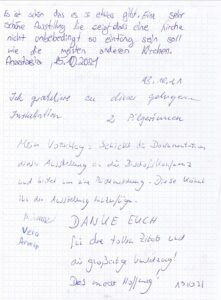 Es ist schön das es so etwas gibt. Eine sehr
schöne Ausstellung. Sie zeigt dass eine Kirche
nicht unbedingt so eintönig sein soll
wie die meisten anderen Kirchen.
Anastasia, 15.10.2021
18.10.21
Ich gratuliere zu dieser gelungenen
Installation 2 Pilgerinnen
Mein Vorschlag: Schickt die Dokumentation
dieser Ausstellung an die Bischofskonferenz
und bittet um eine Rückmeldung. Diese könnt
ihr der Ausstellung hinzufügen.
Vera
DANKE EUCH
für die tollen Zitate und
die großartige Umsetzung!
Das macht Hoffnung! 19.10.21